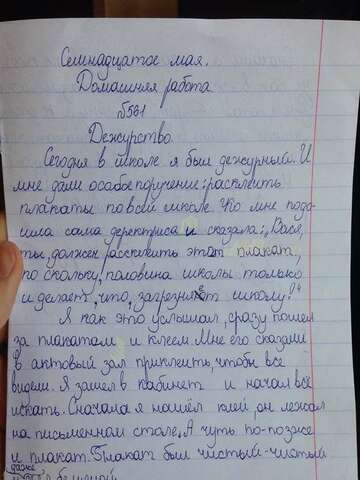 Семнадцатое мая.
Домашняя работа
№561
Дежурство
Сегодня в школе я был дежурный. И
мне дали особое поручение: расклеить
плакаты по всей школе. Ко мне подо-
шла сама деректриса и сказала: „Вася,
ты должен расклеить этот плакат,
по скольку, половина школы только
и делает, что, загрезняет школу!“
Я как это услышал, сразу пошел
за плакатом и клеем. Мне его сказали
в актовый зал приклеить, чтобы все
видели. Я зашел в кабинет и начал всё
искать. Сначала я нашёл клей, он лежал
на письменном столе. А чуть по-позже
и плакат. Плакат был чистый-чистый
даже